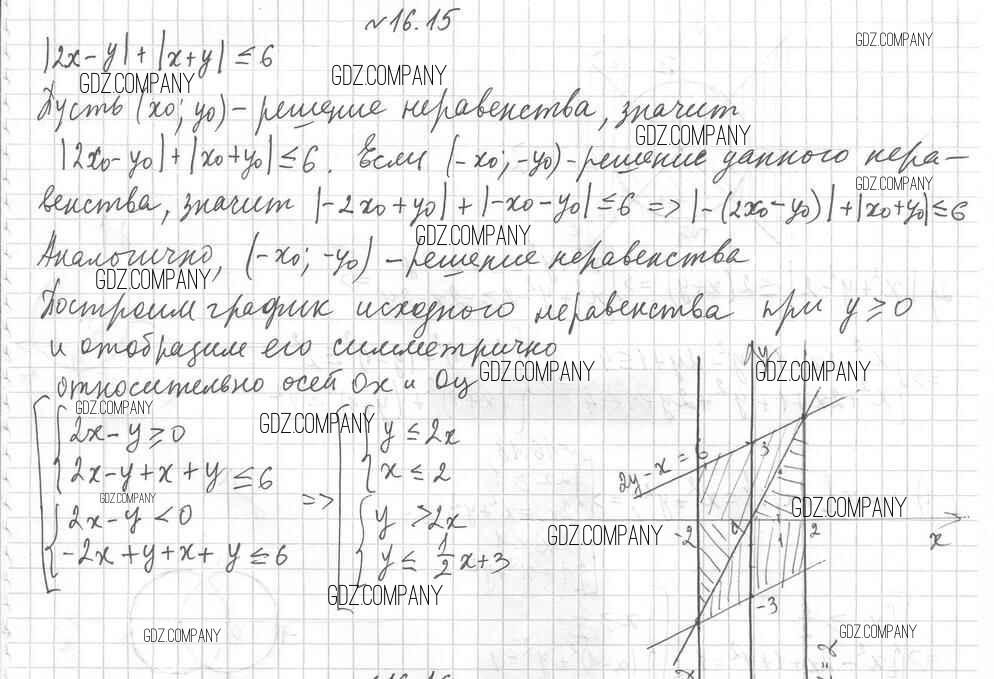 №16.15
GDZ.COMPANY
|2x-y|+|x+y| ≤ 6
GDZ.COMPANY
GDZ.COMPANY
Пусть (x₀; y₀) - решение неравенства, значит
GDZ.COMPANY
|2x₀-y₀|+|x₀+y₀| ≤ 6. Если (-x₀; -y₀) - решение данного нера-
GDZ.COMPANY
венства, значит |-2x₀+y₀|+|-x₀-y₀| ≤ 6 => |-(2x₀-y₀)|+|x₀+y₀| ≤ 6
GDZ.COMPANY
Аналогично, (-x₀; -y₀) - решение неравенства
GDZ.COMPANY
Построим график исходного неравенства при y ≥ 0
и отобразим его симметрично
GDZ.COMPANY
GDZ.COMPANY
относительно осей Ox и Oy
GDZ.COMPANY
GDZ.COMPANY
2x-y ≥ 0
2x-y+x+y ≤ 6
GDZ.COMPANY
2x-y < 0
-2x+y+x+y ≤ 6
=>
y ≤ 2x
x ≤ 2
y > 2x
y ≤ 1/2 x+3
GDZ.COMPANY
y
2y-x = 6
3
GDZ.COMPANY
GDZ.COMPANY
-2
0
1
2
x
-3
GDZ.COMPANY
GDZ.COMPANY